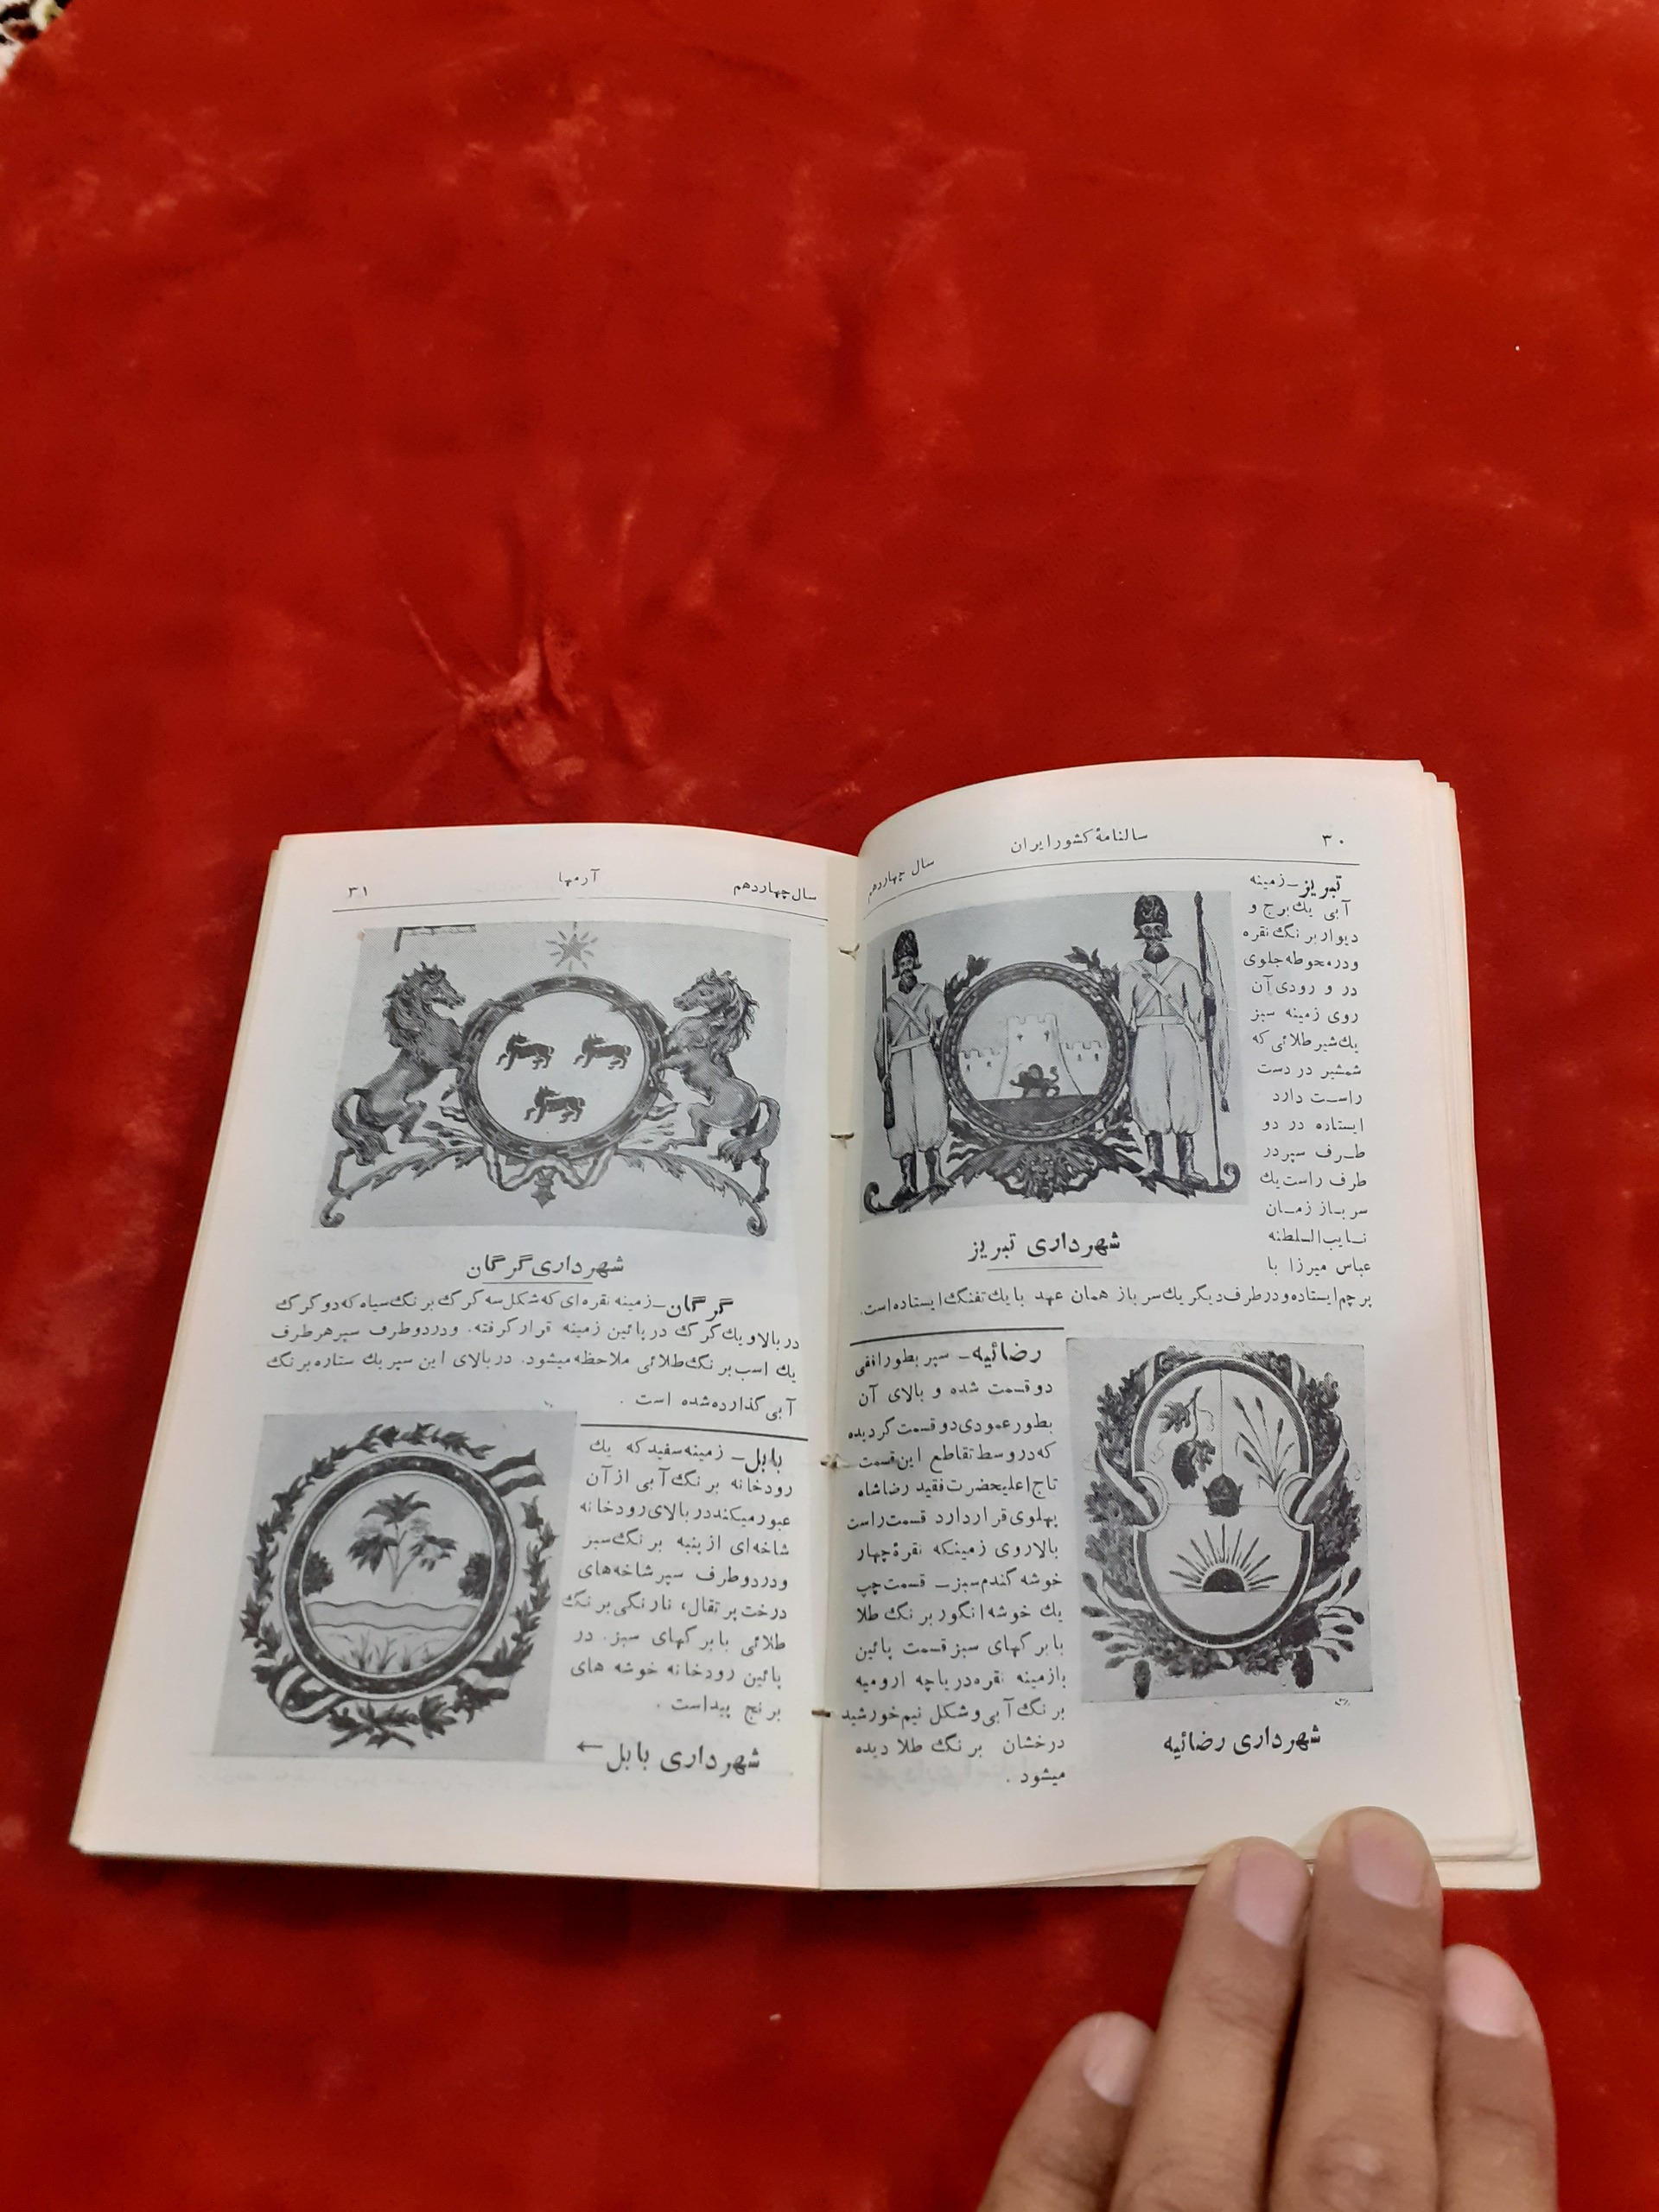 ۳۰
سالنامهٔ کشور ایران
سال چهاردهم
تبریز ــ زمینه
آبی یك برج و
دیوار برنگ نقره
ودرمحوطه جلوی
در و رودی آن
روی زمینه سبز
یك شیر طلائی که
شمشیر در دست
راست دارد
ایستاده در دو
طرف سپر در
طرف راست یك
سرباز زمان
نایب السلطنه
عباس میرزا با
پرچم ایستاده و در طرف دیگر یك سرباز همان عهد با یك تفنگ ایستاده است.
شهرداری تبریز
رضائیه ــ سپر بطور افقی
دو قسمت شده و بالای آن
بطور عمودی دو قسمت گردیده
که در وسط تقاطع این قسمت
تاج اعلیحضرت فقید رضاشاه
پهلوی قرار دارد قسمت راست
بالا روی زمینکه نقرهٔ چهار
خوشه گندم سبز ــ قسمت چپ
یك خوشه انگور برنگ طلا
با برگهای سبز قسمت پائین
بازمینه نقره دریاچه ارومیه
برنگ آبی و شکل نیم خورشید
درخشان برنگ طلا دیده
میشود .
شهرداری رضائیه
سال چهاردهم
آرمها
۳۱
شهرداری گرگان
گرگان ــ زمینه نقره‌ای که شکل سه گرگ برنگ سیاه که دو گرگ
در بالا و یك گرگ در پائین زمینه قرار گرفته. ودر دو طرف سپر هر طرف
یك اسب برنگ طلائی ملاحظه میشود. در بالای این سپر یك ستاره برنگ
آبی گذارده شده است .
بابل ــ زمینه سفید که یك
رودخانه برنگ آبی از آن
عبور میکند در بالای رودخانه
شاخه‌ای از پنبه برنگ سبز
ودر دو طرف سپر شاخه‌های
درخت پرتقال، نارنگی برنگ
طلائی با برگهای سبز. در
پائین رودخانه خوشه های
برنج پیداست .
شهرداری بابل ←